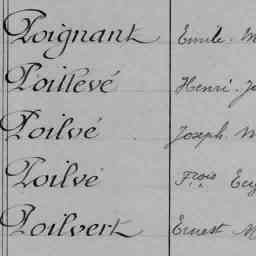 Poignant Emile. M
Poillevé Henri. J
Poilvé Joseph. M
Poilvé Frois Eug
Poilvert Ernest M